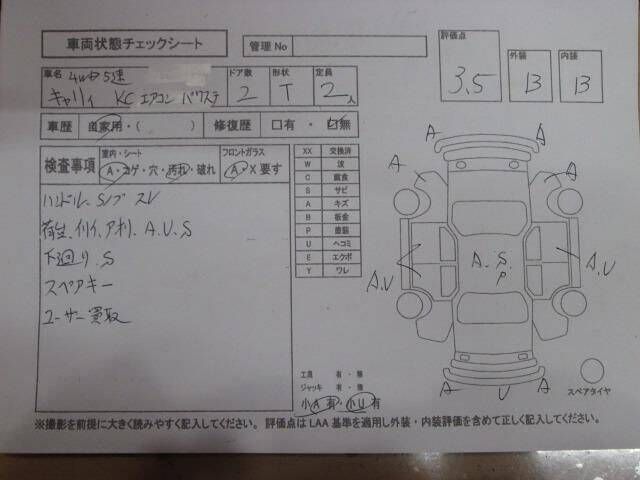 車両状態チェックシート
管理No
評価点 3.5
外装 B
内装 B
車名 4WD 5速
キャリィ KC エアコン パワステ
ドア数 2
形状 T
定員 2人
車歴 自家用・( )
修復歴 口有 口無
検査事項
室内・シート
A・コゲ・穴・汚れ・破れ
フロントガラス
A・X 要す
ハンドル、S/ブ スレ
荷台、A.U.S
下廻り.S
スペアキー
ユーザー買取
XX 交換済
W 波
C 腐食
S サビ
A キズ
B 板金
P 塗装
U ヘコミ
E エクボ
Y ワレ
工具 有・無
ジャッキ 有・無
小A有・小U有
A A
A A
A.U A.S. A.U
P
A U A
スペアタイヤ
※撮影を前提に大きく読みやすく記入してください。評価点は LAA 基準を適用し外装・内装評価を含めて正しく記入してください。